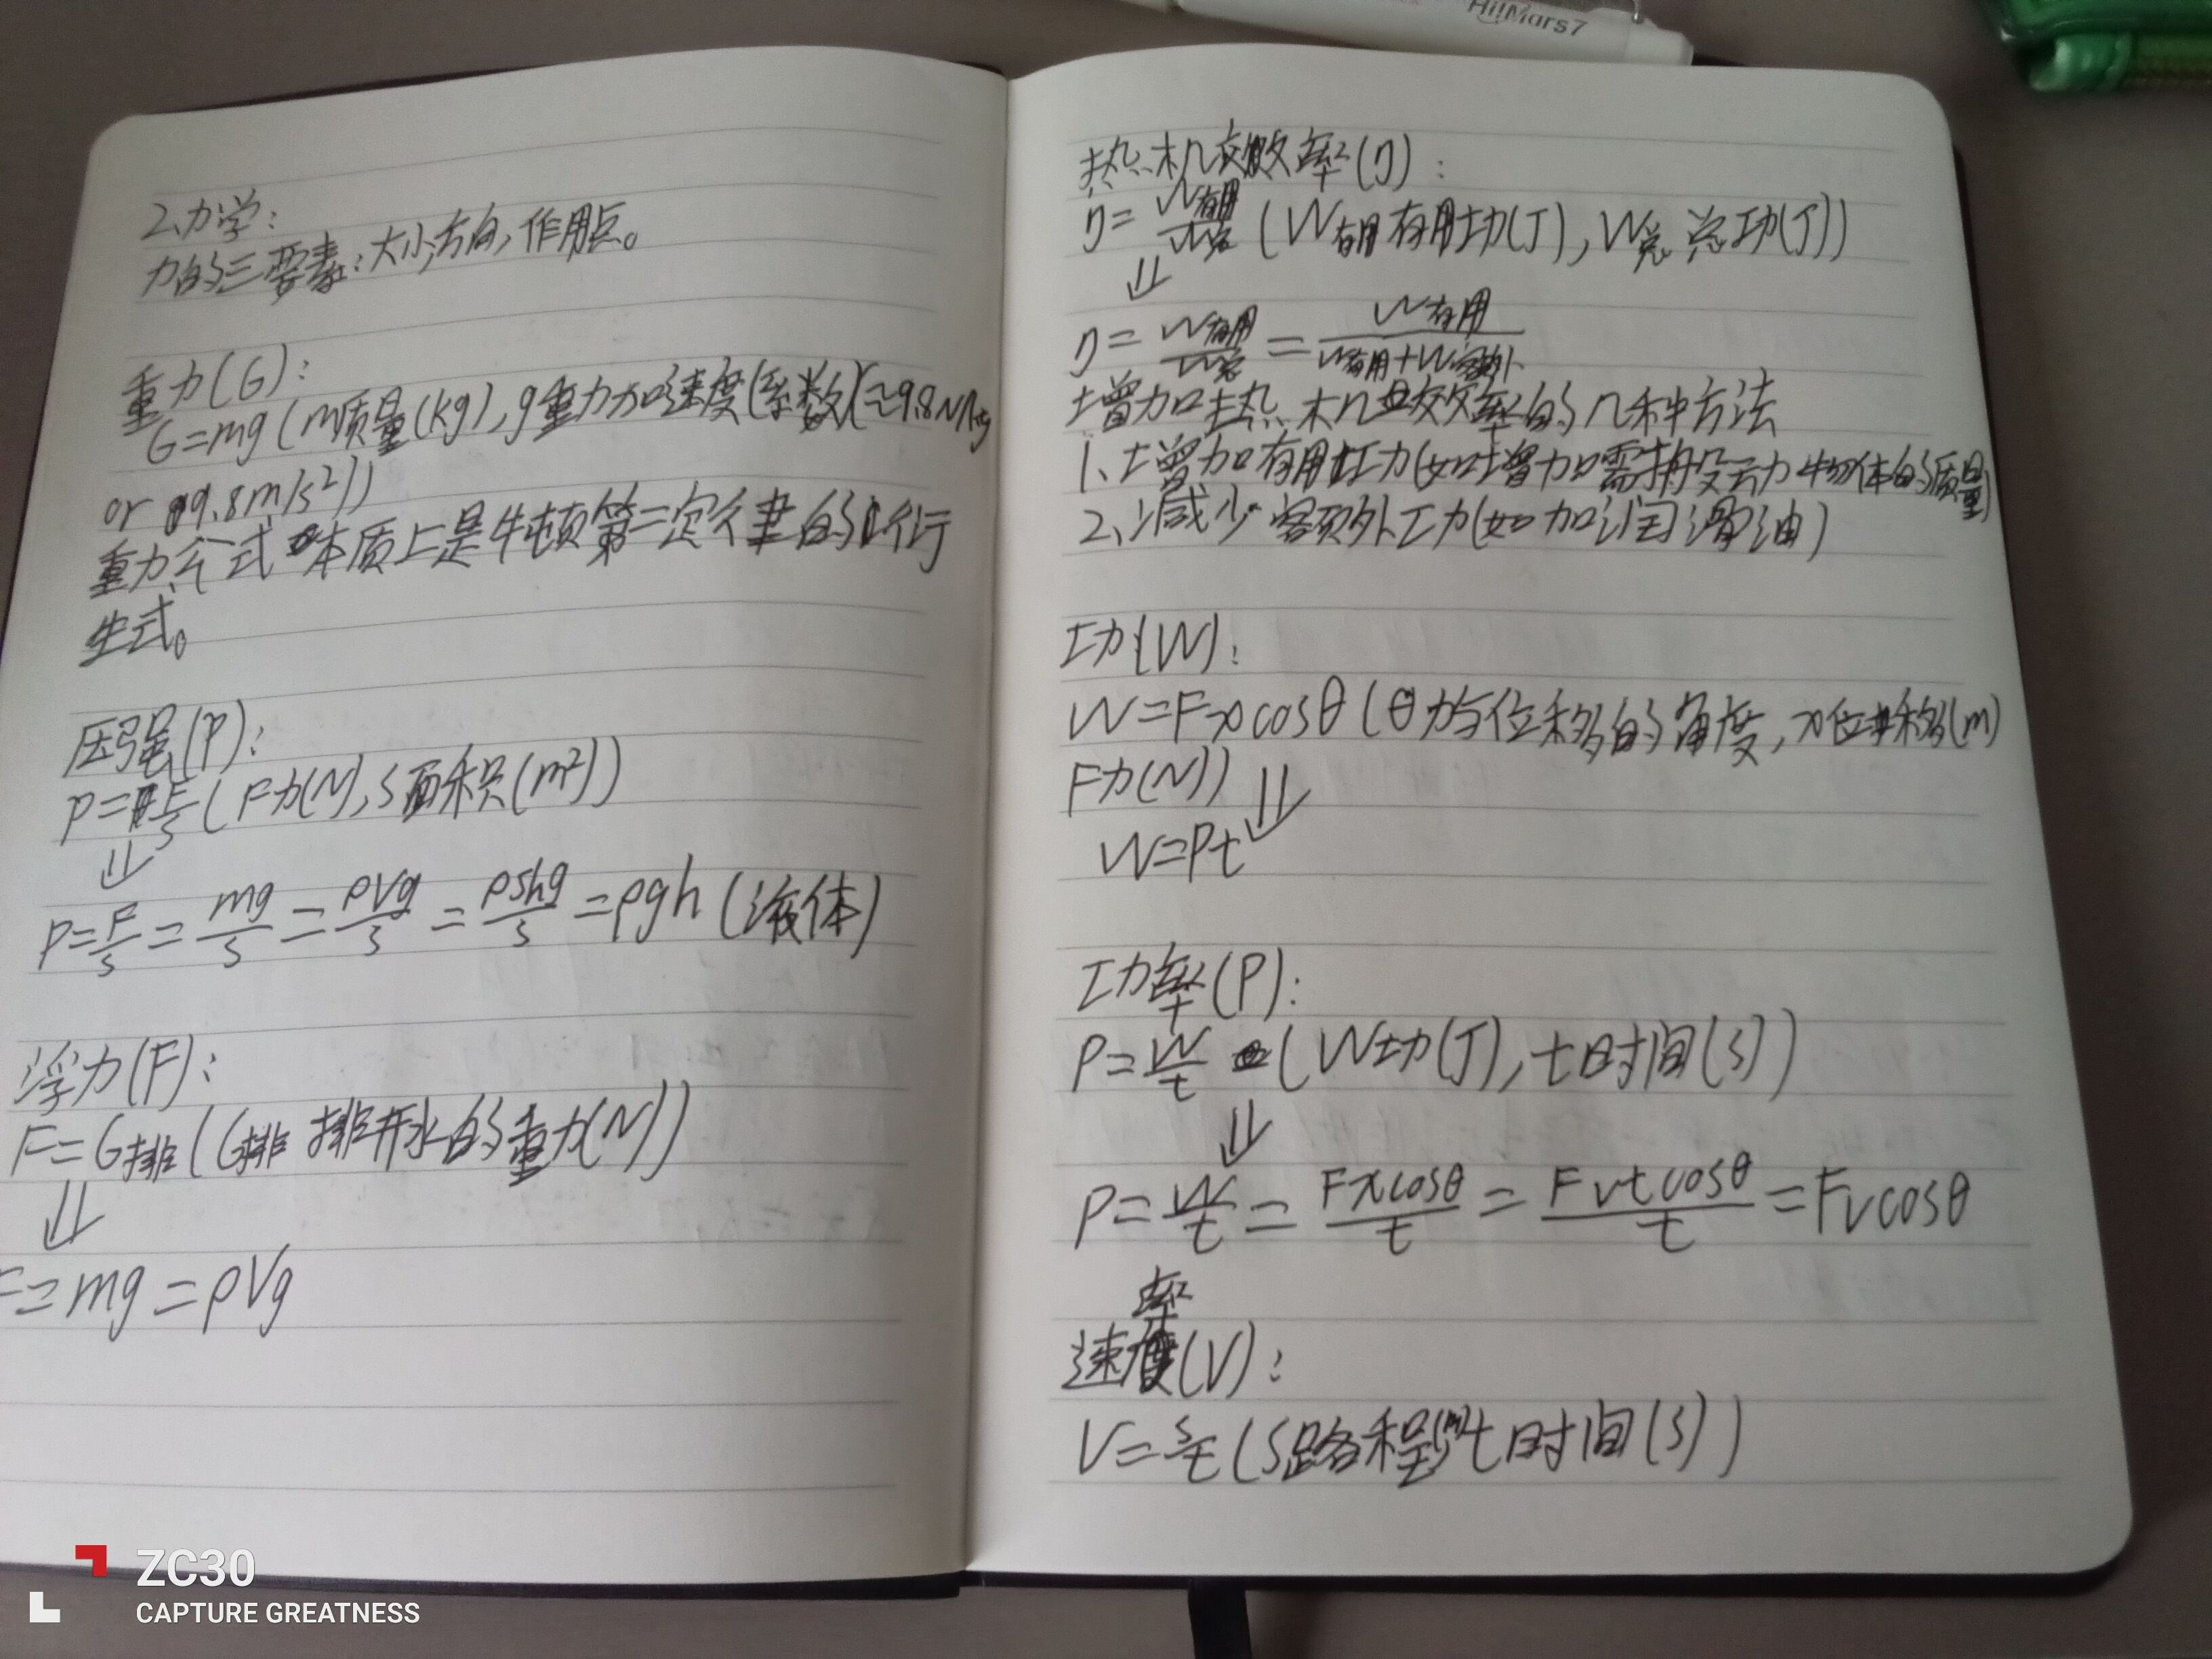 HiIMars7
2、力学：
力的三要素：大小，方向，作用点。
重力(G)：
G=mg(m质量(kg)，g重力加速度(系数)(≈9.8N/kg
or 9.8m/s²))
重力公式本质上是牛顿第二定律的衍
生式。
压强(P)：
P=F/S(F力(N)，S面积(m²))
⇓
P=F/S=mg/S=ρVg/S=ρshg/S=ρgh(液体)
浮力(F)：
F=G排(G排 排开水的重力(N))
⇓
F=mg=ρVg
热机效率(η)：
η=W有用/W总(W有用有用功(J)，W总总功(J))
⇓
η=W有用/W总=W有用/(W有用+W额外)
增加热机效率的几种方法
1、增加有用功(如增加需搬运动物体的质量)
2、减少额外功(如加润滑油)
功(W)：
W=Fxcosθ(θ力与位移的角度，x位移(m)
F力(N))
⇓
W=Pt
功率(P)：
P=W/t(W功(J)，t时间(s))
⇓
P=W/t=Fxcosθ/t=Fvtcosθ/t=Fvcosθ
速率(V)：
V=s/t(S路程(m)t时间(s))
ZC30
CAPTURE GREATNESS